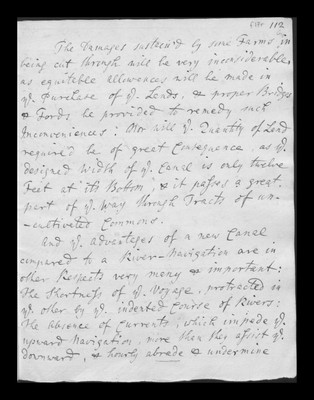 112
The Damages sustain'd by some Farms in
being cut through will be very inconsiderable,
as equitable allowances will be made in
yᵉ. Purchase of yᵉ Lands, & proper Bridges
& Fords be provided to remedy such
Inconveniences: Nor will yᵉ. Quantity of Land
required be of great Consequence, as yᵉ.
designed Width of yᵉ. Canal is only twelve
Feet at its Bottom, & it passes a great
part of yᵉ. way through Tracts of un-
-cultivated Commons.
And yᵉ. advantages of a new Canal
compared to a River-Navigation are in
other Respects very many & important:
The Shortness of yᵉ. Voyage, protracted in
yᵉ. other by yᵉ. indented Course of Rivers:
The absence of Currents, which impede yᵉ.
upward Navigation, more than they assist yᵉ.
downward, & hourly abrade & undermine